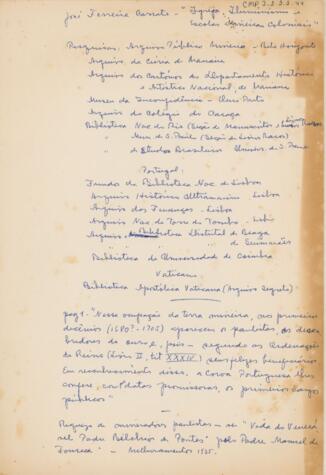 CMP 3.2.3.3.44
José Ferreira Carrato - "Igreja, Iluminismo e
Escolas Mineiras Coloniais"
Pesquisas: Arquivo Público Mineiro - Belo Horizonte
Arquivo da Cúria de Mariana
Arquivo dos Cartórios do Departamento Histórico
e Artístico Nacional, de Mariana
Museu da Inconfidência - Ouro Preto
Arquivo do Colégio do Caraça
Biblioteca Nac do Rio (Seção de Manuscritos e Livros Raros)
" Mun. de S. Paulo (Seção de Livros Raros)
" de Estudos Brasileiros Univers. de S. Paulo
Portugal:
Fundo da Biblioteca Nac de Lisboa
Arquivo Histórico Ultramarino - Lisboa
Arquivo das Finanças - Lisboa
Arquivo Nac da Torre do Tombo - Lisb
Arquivo Biblioteca Distrital de Braga
" " de Guimarães
Biblioteca da Universidade de Coimbra
Vaticano
Biblioteca Apostólica Vaticana (Arquivo Segreto)
pag 1 - "Nessa ocupação da terra mineira, nos primeiros
decênios (1680? - 1705) aparecem os paulistas, os desco-
bridores do ouro e, pois - segundo as Ordenações
do Reino (Livro II, tit XXXIV) seus felizes beneficiários
Em reconhecimento disso, a Coroa Portuguesa lhes
confere, cartas patentes promissoras, os primeiros cargos
públicos"
Riqueza de mineradores paulistas - in "Vida do Venerá-
vel Padre Belchior de Pontes" pelo Padre Manuel da
Fonseca - Melhoramentos 1935.